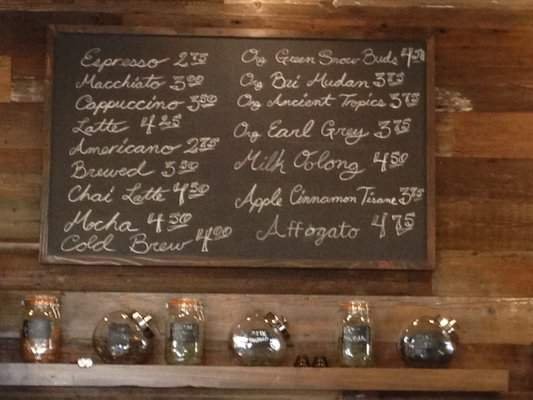 Espresso 2 75
Macchiato 3 00
Cappuccino 3 50
Latte 4 25
Americano 2 75
Brewed 3 50
Chai Latte 4 50
Mocha 4 50
Cold Brew 4 00
Org Green Snow Buds 4 50
Org Bai Mudan 3 75
Org Ancient Tropics 3 75
Org Earl Grey 3 75
Milk Oolong 4 50
Apple Cinnamon Tisane 3 75
Affogato 4 75